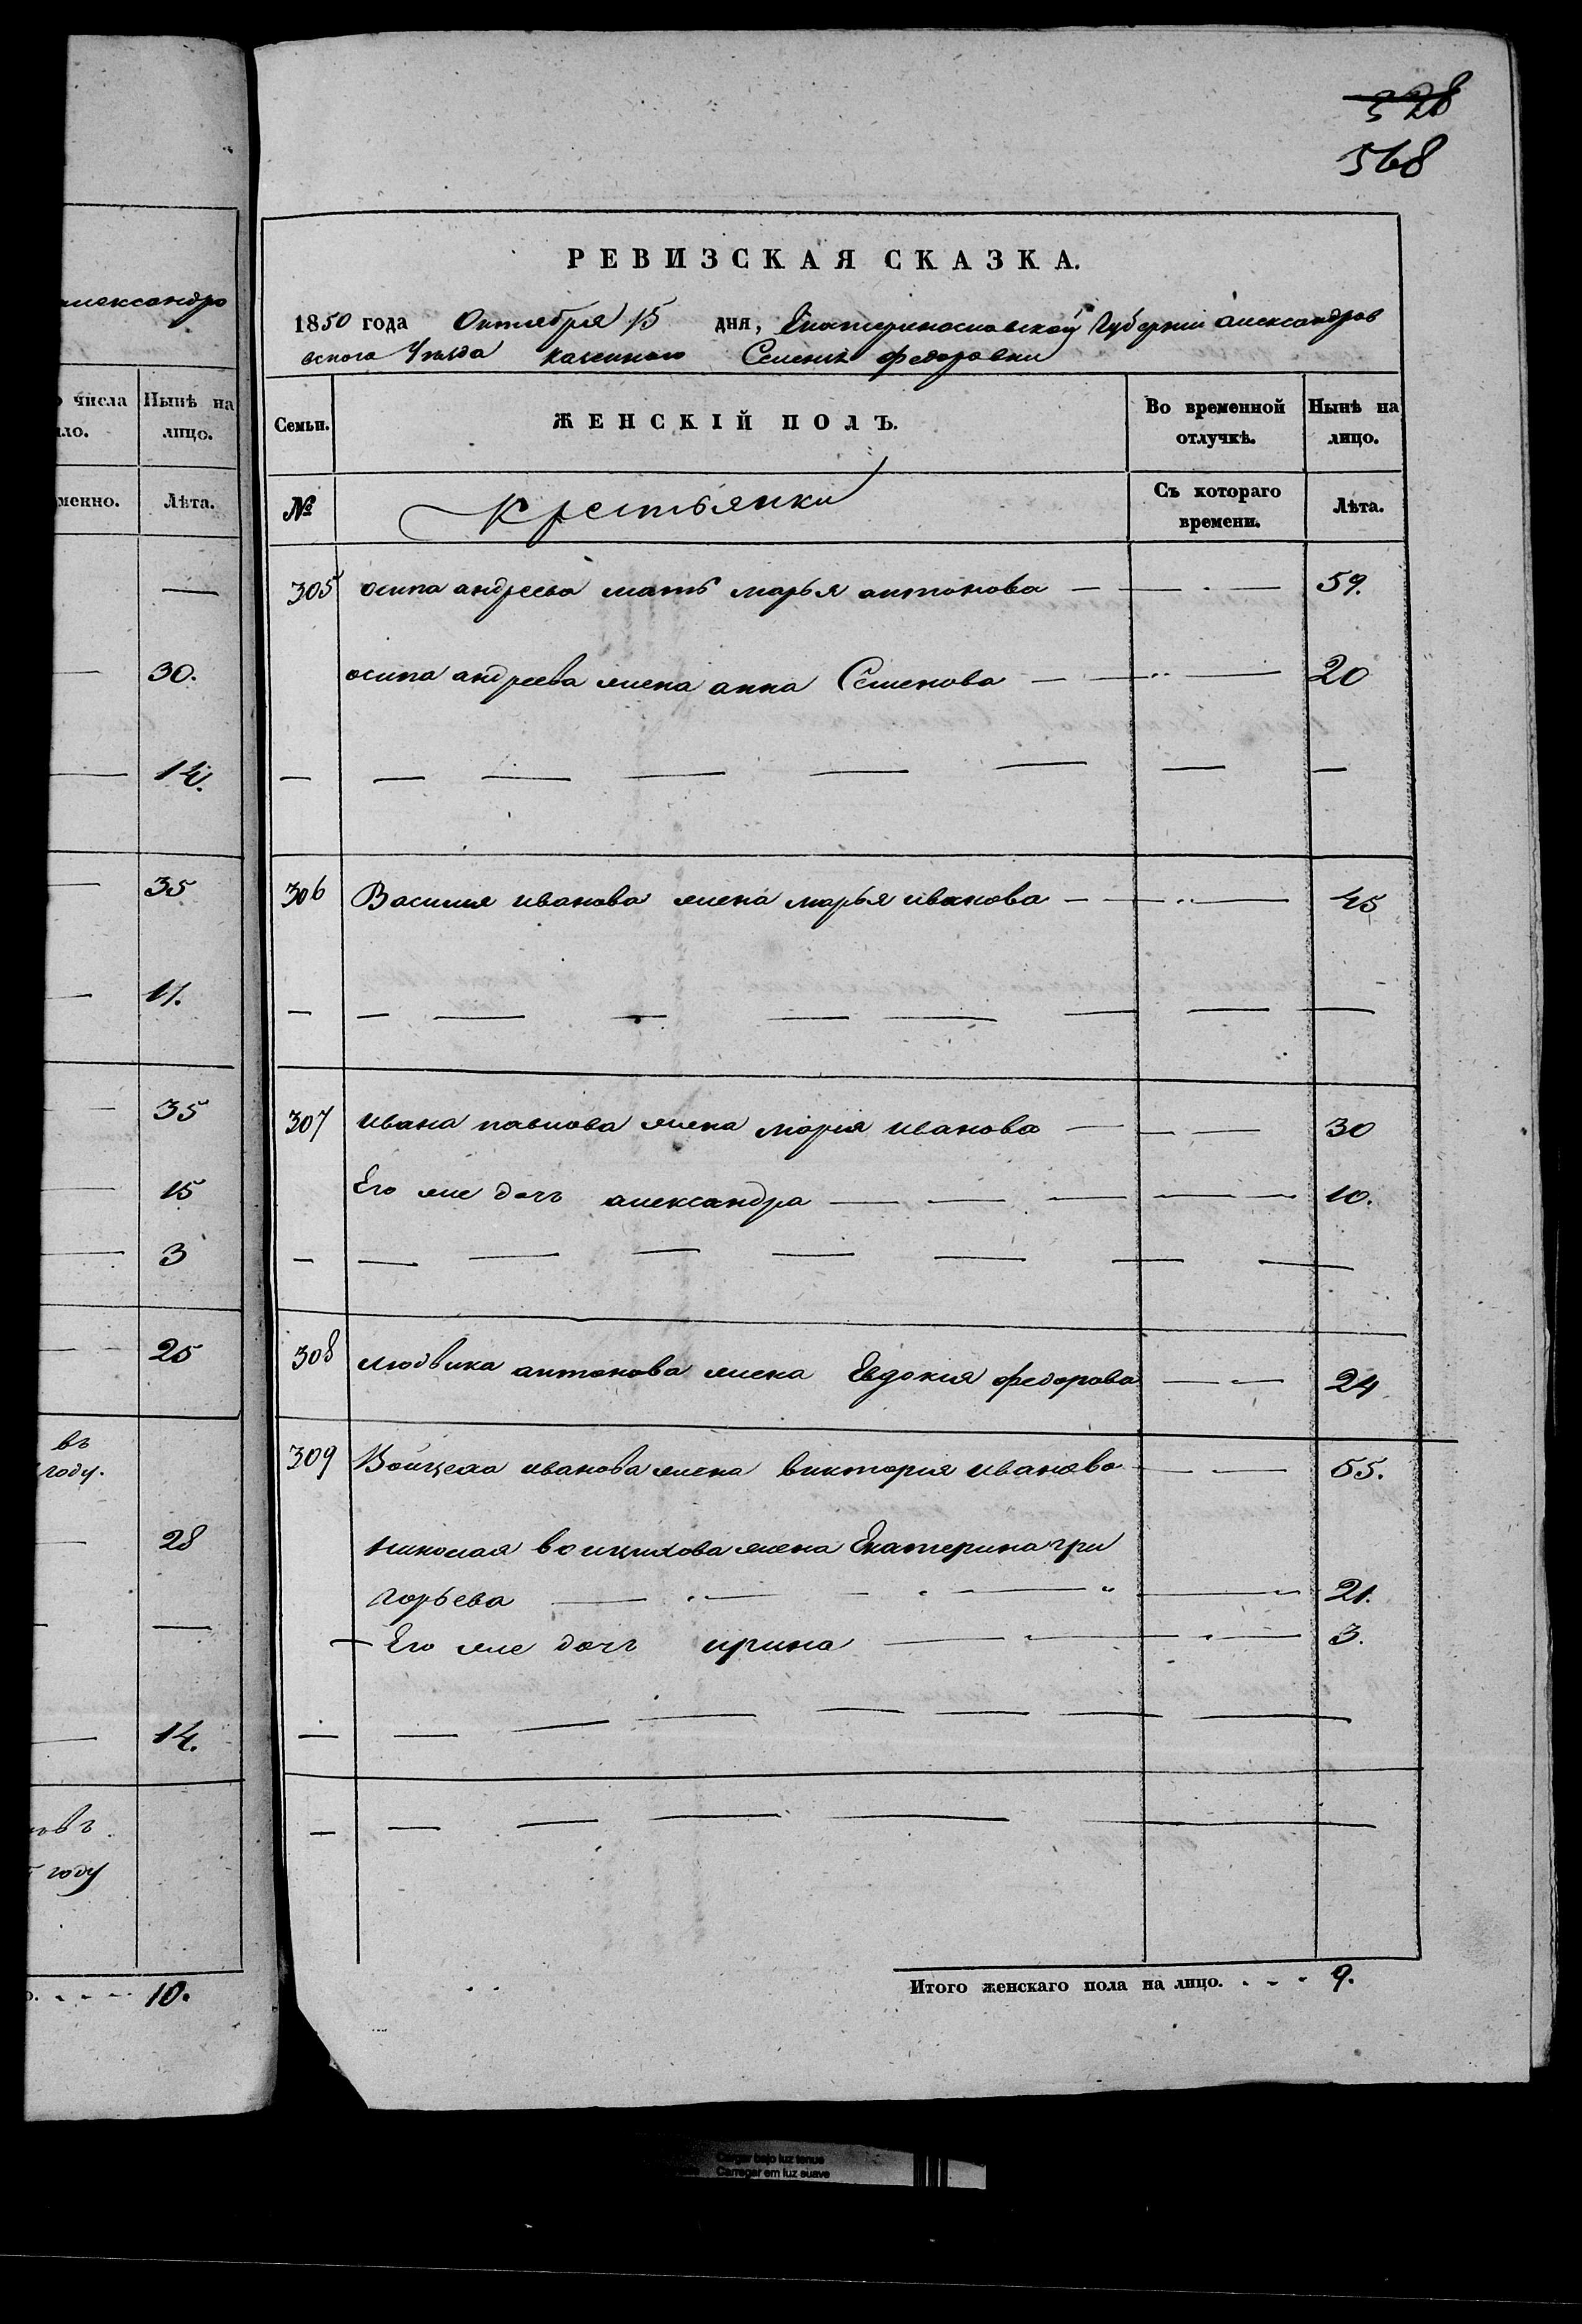 328
568
александро
числа
ло.
Нынѣ на
лицо.
менно.
Лѣта.
—
30.
14.
35
17.
35
15
3
25
въ
году.
28
—
14.
году
10.
РЕВИЗСКАЯ СКАЗКА.
1850 года Октября 15 дня, Екатеринославской Губернии Александров
вского Уѣзда казенного Селенія Федоровки
Семьи.
ЖЕНСКІЙ ПОЛЪ.
Во временной
отлучкѣ.
Нынѣ на
лицо.
№
Крестьянки
Съ котораго
времени.
Лѣта.
305 осипа андреева мать марья антонова — — 59.
осипа андреева жена анна Семенова — — 20
306 Василия иванова жена марья иванова — — 45
307 ивана павлова жена марія иванова — — 30
Его же дочь александра — — 10.
308 людвика антонова жена Евдокия федорова — — 24
309 Войцеха иванова жена виктория иванова — — 55.
николая воицихова жена Екатерина гри
горьева — — 21.
Его же дочь ирина — — 3.
Итого женскаго пола на лицо. . . . 9.
Cargar bajo luz tenue
Carregar em luz suave